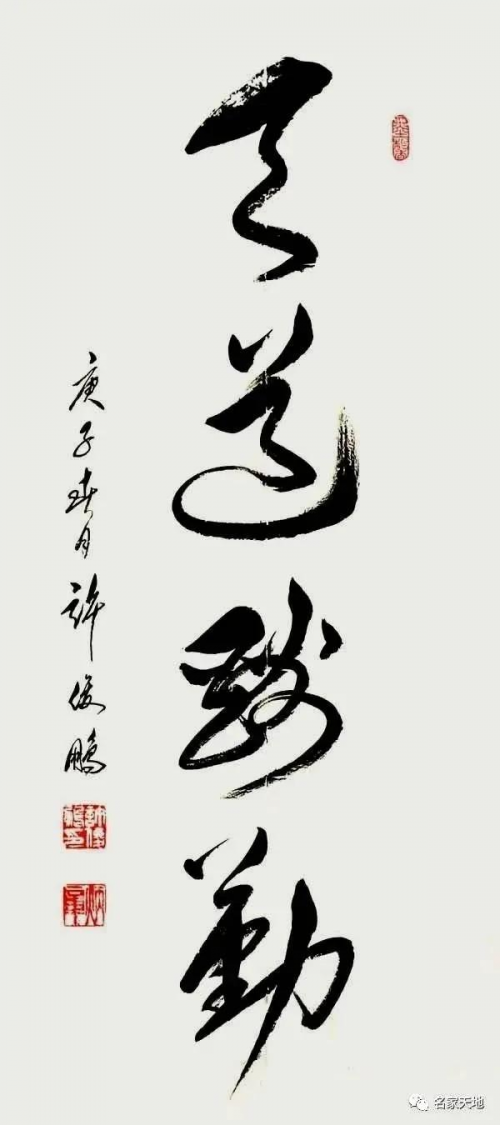 天道酬勤
庚子春月许俊鹏
名家天地